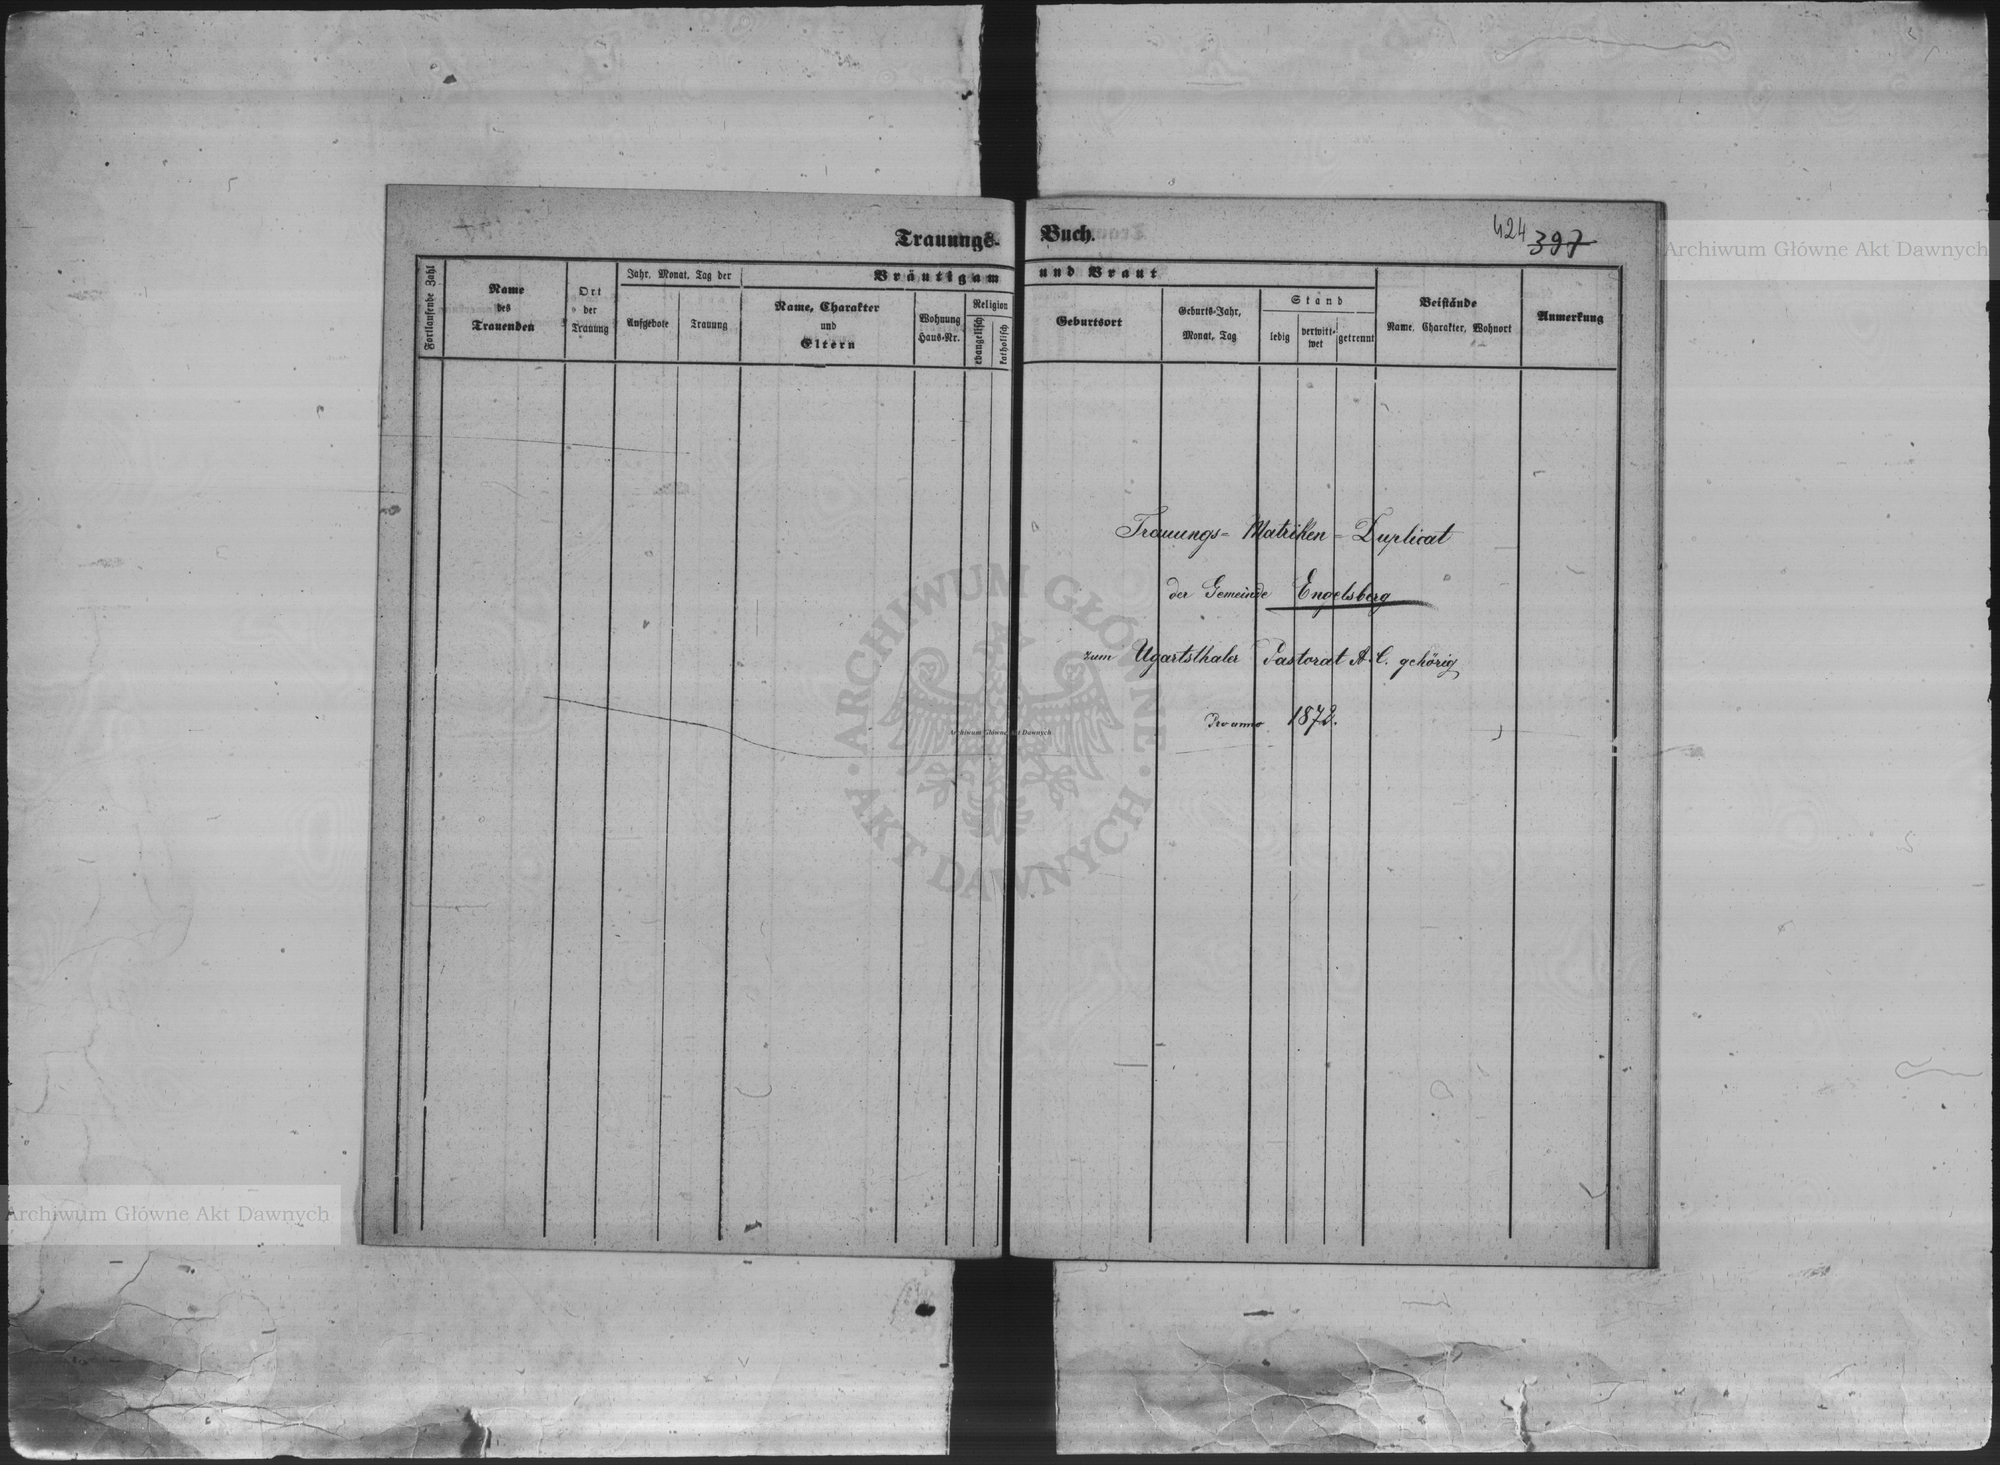 Trauungs-Buch.
424 397
Fortlaufende Zahl
Name
des
Trauenden
Ort
der
Trauung
Jahr, Monat, Tag der
Aufgebote
Trauung
Bräutigam und Braut
Name, Charakter
und
Eltern
Wohnung
Haus-Nr.
Religion
evangelisch
katholisch
Geburtsort
Geburts-Jahr,
Monat, Tag
Stand
ledig
verwitt-
wet
getrennt
Beistände
Name, Charakter, Wohnort
Anmerkung
Trauungs- Matriken- Duplicat
der Gemeinde Engelsberg
zum Ugartsthaler Pastorat A. C. gehörig
Pro anno 1872.
ARCHIWUM GŁÓWNE
AKT DAWNYCH
Archiwum Główne Akt Dawnych
Archiwum Główne Akt Dawnych
Archiwum Główne Akt Dawnych